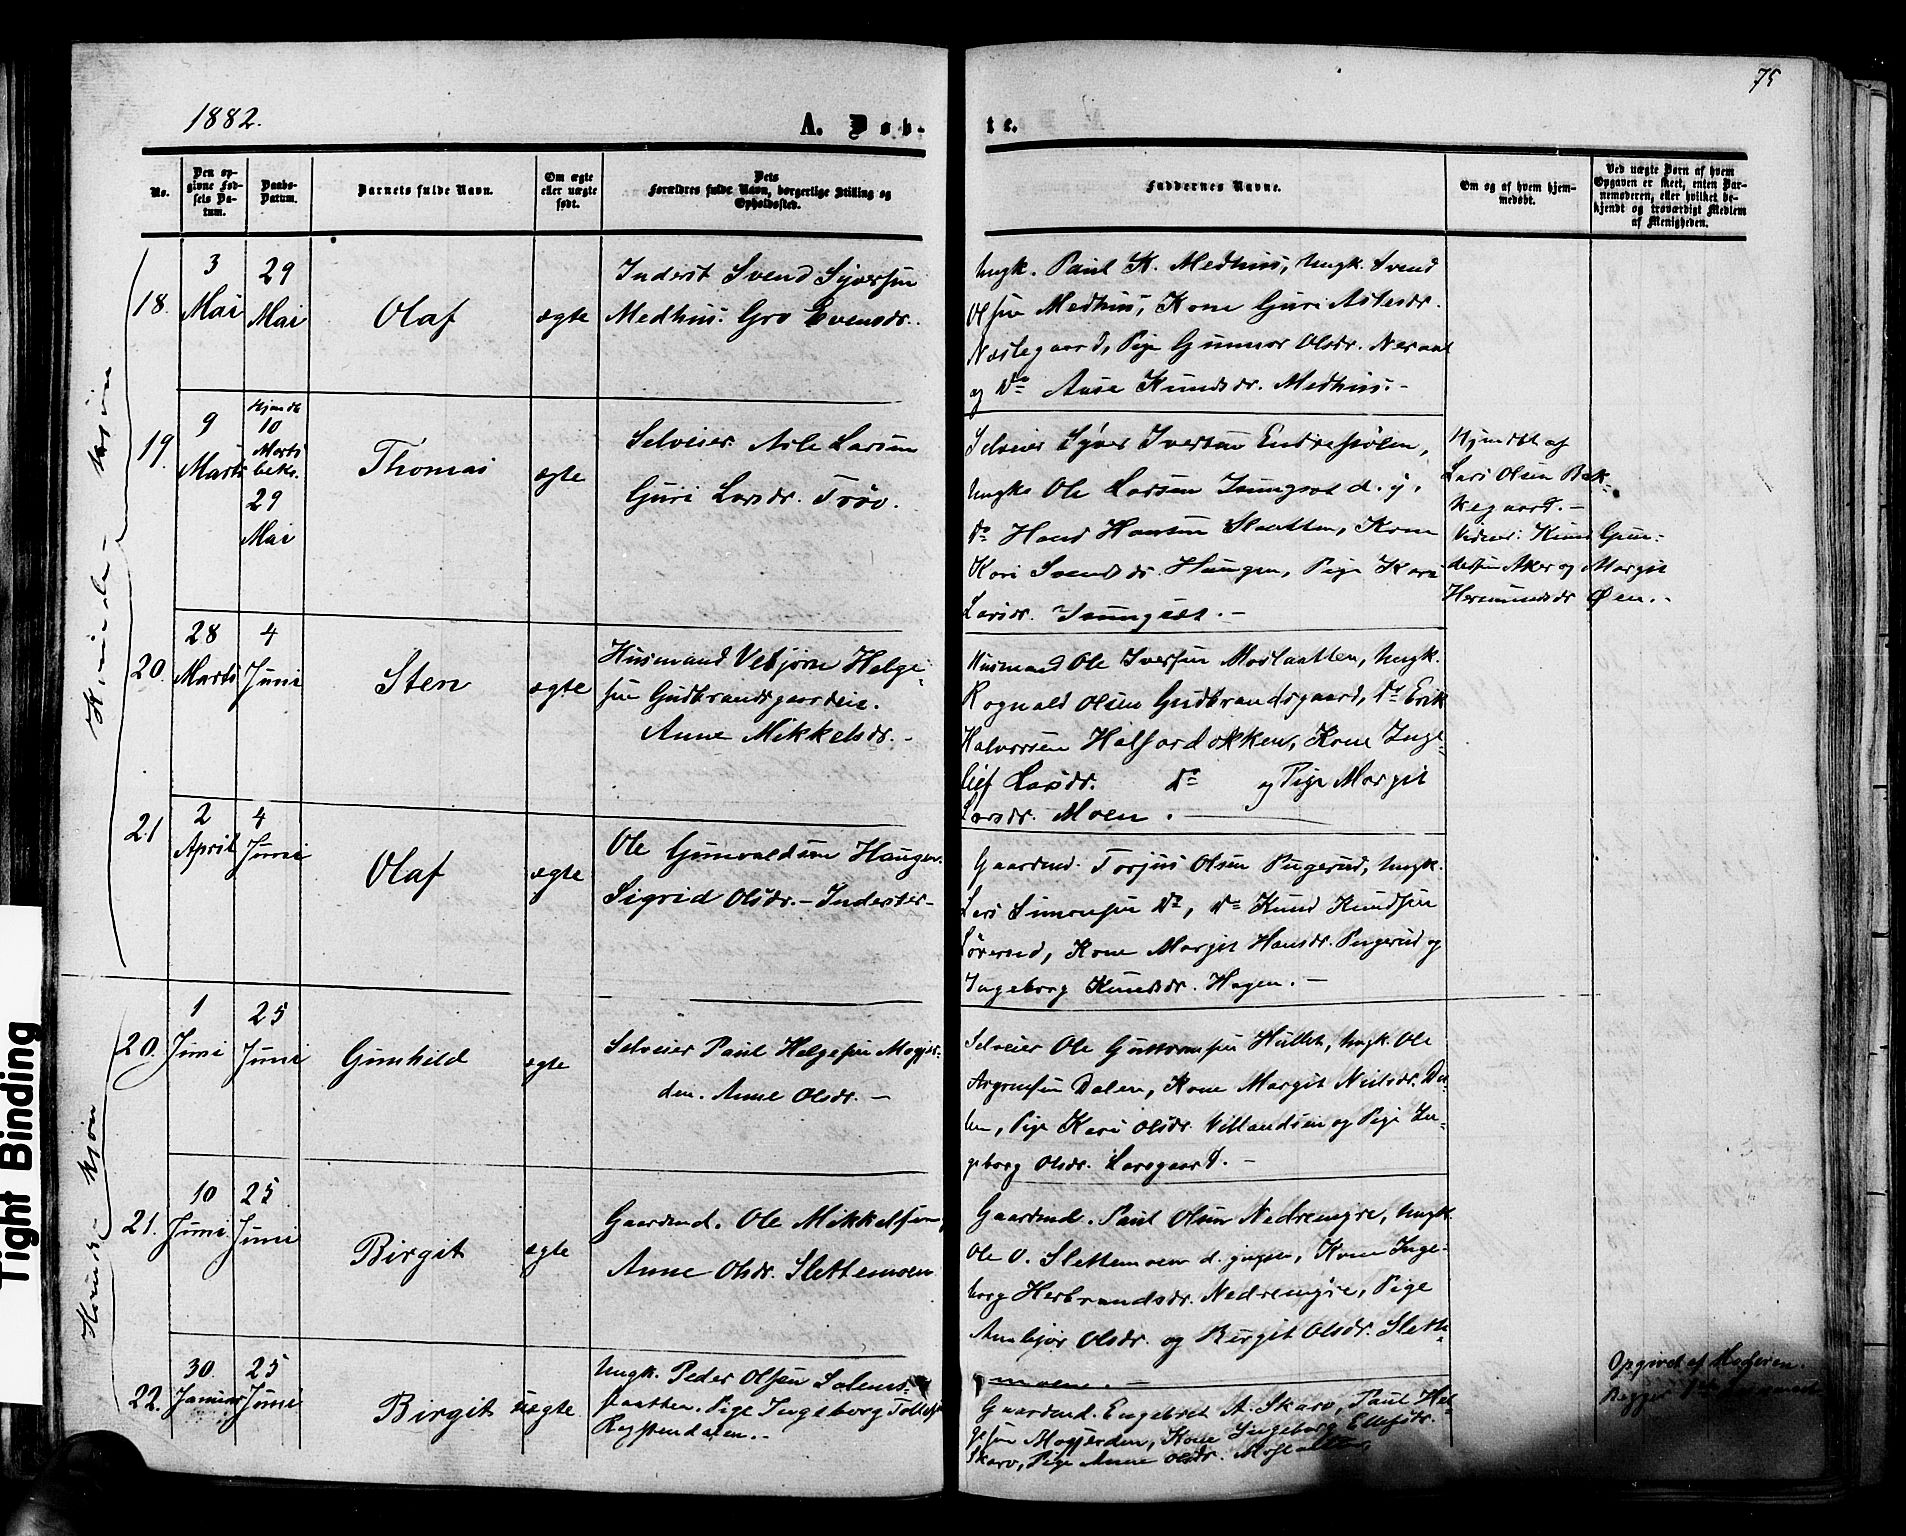 75
1882.
A. Døb-
te.
No.
Den op-
givne Fød-
sels Da-
tum.
Daabs-
Datum.
Barnets fulde Navn.
Om ægte
eller uægte
født.
Dets
Forældres fulde Navn, borgerlige Stilling og
Opholdssted.
Faddernes Navne.
Om og af hvem hjem-
medøbt.
Ved uægte Børn af hvem
Opgaven er skeet, enten Bar-
nemoderen, eller hvilket be-
kjendt og troværdigt Medlem
af Menigheden.
18.
3
Mai
29
Mai
Olaf
ægte
Inderst Svend Syversen
Medhus. Gro Evensdr.
Ungk. Paul K. Medhus, Ungk. Svend
Olsen Medhus, Kone Guri Aslesdr.
Næstegaard, Pige Gunnor Olsdr. Neraal
og do Aase Knudsdr. Medhus.-
19.
9
Marts
Hjemdt
10
Marts
bekr.
29
Mai
Thomas
ægte
Selveier Asle Larsen
Guri Larsdr. Trøo.
Selveier Syver Iversen Endrestølen,
Ungk Ole Larsen Isungset d. y.
do Hans Hansen Slaatten, Kone
Kari Svendsdr. Haugen, Pige Kari
Larsdr. Isungset. -
Hjemdbt af
Lars Olsen Bak-
kegaard. -
Vidner: Knud Gun-
dersen Aker og Margit
Hermundsdr Øen. -
20.
28
Marts
4
Juni
Sten
ægte
Husmand Vebjørn Helge-
sen Gudbrandsgaardeie.
Anne Mikkelsdr. -
Husmand Ole Iversen Moslaatten, Ungk.
Rognald Olsen Gudbrandsgaard, do Erik
Halvorsen Halfardokken, Kone Inge-
lief Larsdr. do og Pige Margit
Larsdr. Moen. -
21
2
April
4
Juni
Olaf
ægte
Ole Gunvaldsen Haugen
Sigrid Olsdr. - Inderster -
Gaardmd. Torjus Olsen Pugerud, Ungk.
Lars Simonsen do, do Knud Knudsen
Sørerud, Kone Margit Hansdr. Pugerud og
Ingeborg Knudsdr. Hagen. -
20.
1
Juni
25
Juni
Gunhild
ægte
Selveier Paul Helgesen Mogjer-
den. Anne Olsdr. -
Selveier Ole Guttormsen Hullet, Ungk. Ole
Asgrimsen Dalen, Kone Margit Nielsdr. Da-
len, Pige Kari Olsdr. Villandseie og Pige In-
geborg Olsdr. Larsgaard. -
21.
10
Juni
25
Juni
Birgit
ægte
Gaardmd. Ole Mikkelsen,
Anne Olsdr. Slettemoen
Gaardmd. Paul Olsen Nedremyre, Ungk.
Ole O. Slettemoen d. yngre, Kone Inge-
borg Herbrandsdr. Nedremyre, Pige
Anbjør Olsdr. og Birgit Olsdr. Slette-
moen. -
22.
30
Januar
25
Juni
Birgit
uægte
Ungk. Peder Olsen
slaatten. Pige Ingeborg
Røysendalen. -
Gaardmd. Engebret A. Skaro, Paul Hel-
gesen Mogjerden, Kone Ingeborg Ellefsdr.
Skaro, Pige Anne Olsdr. Moslaatten
Opgivet af Moderen.
Begge
Tight Binding